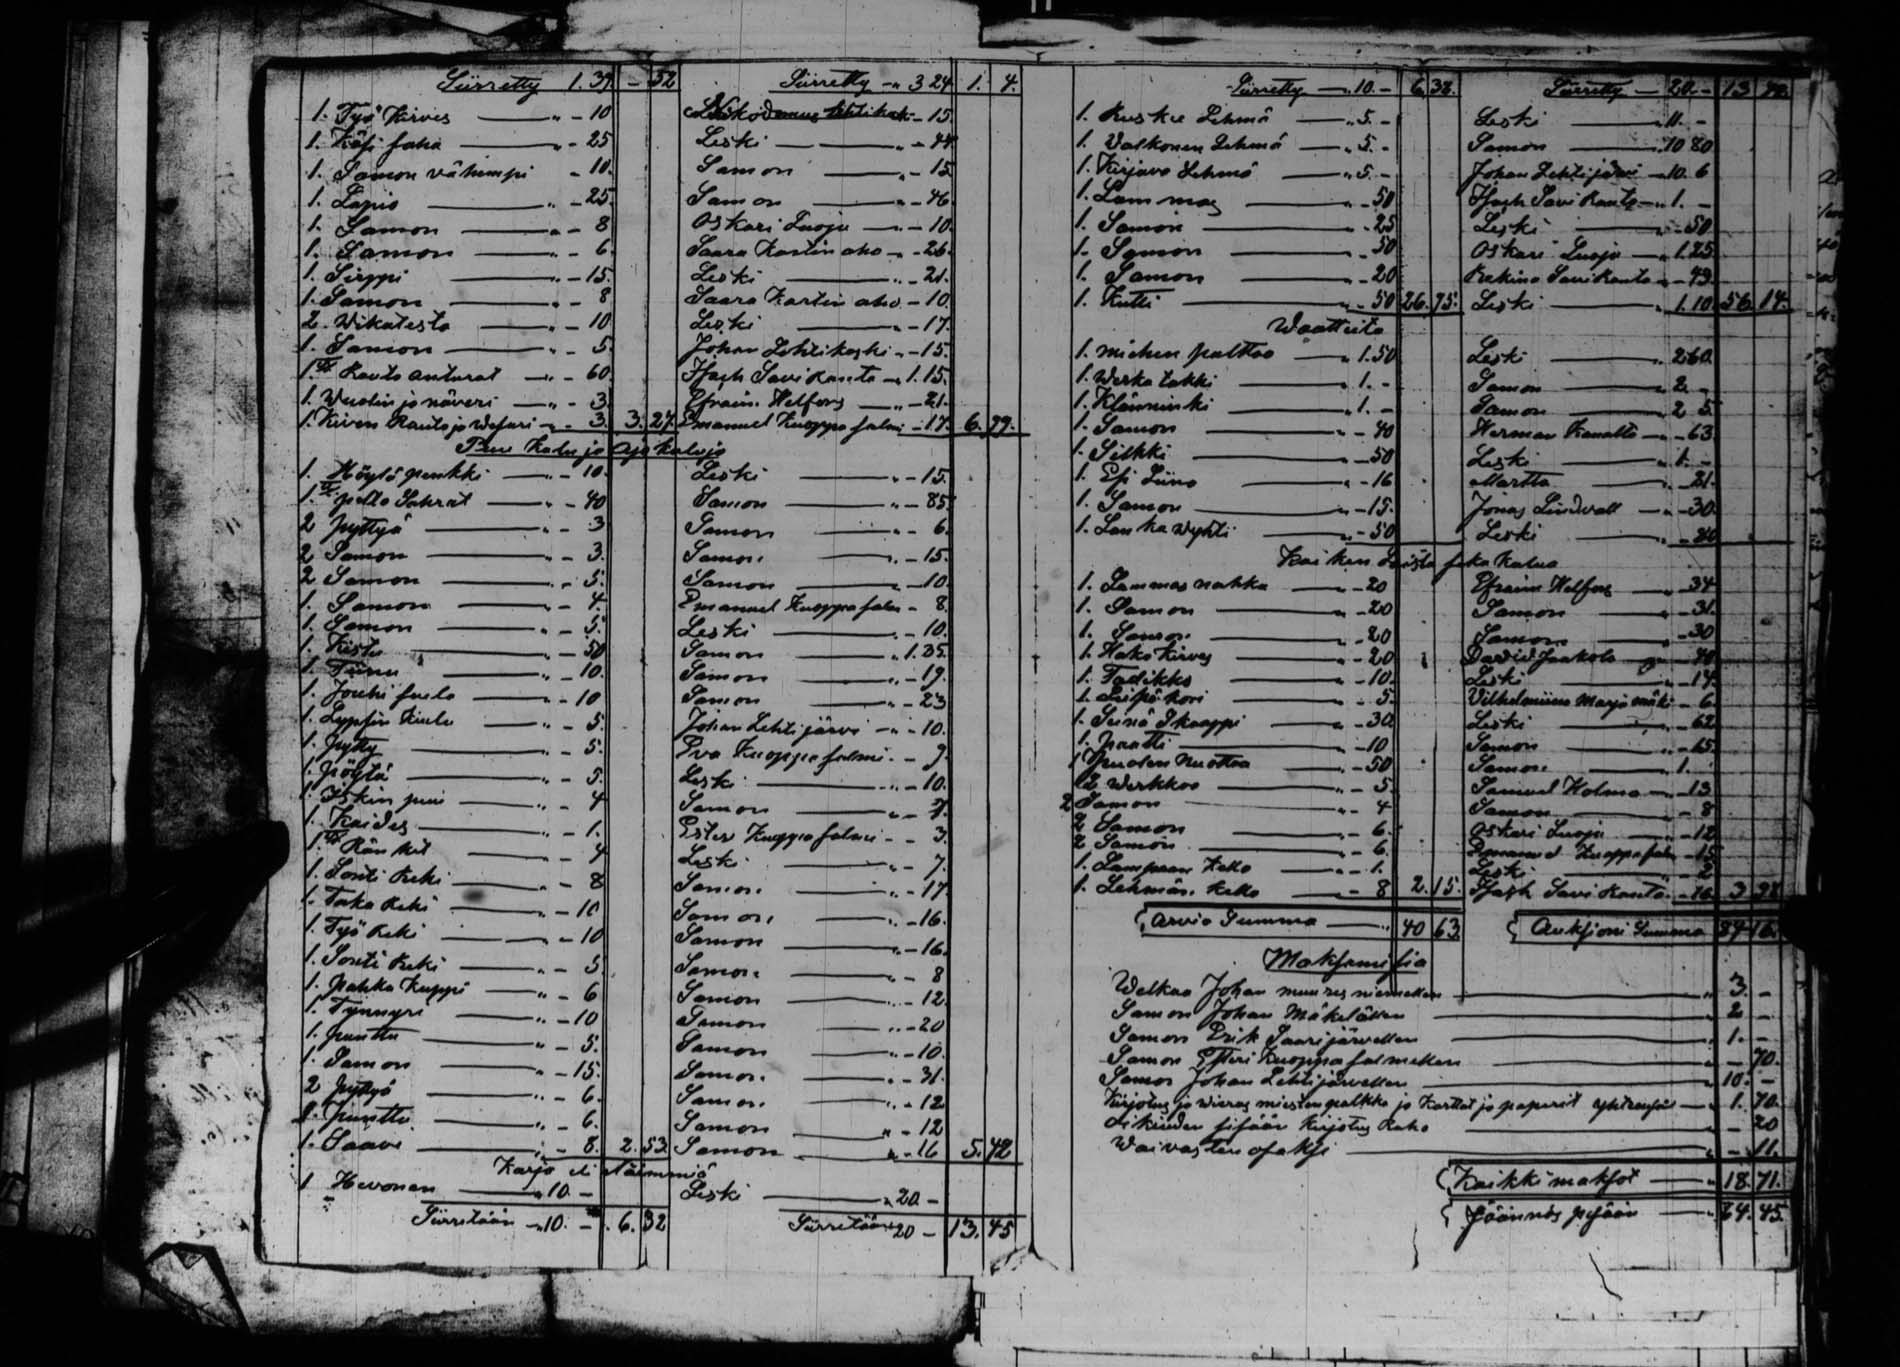 Siirretty 1.39 - 52 Siirretty - " 3 24 1. 4.
1. Työ Kirves " - 10 Nikodemus Lehtikoski - 15.
1. Käsi saha " - 25 Leski " - 44
1. Samon vähempi - 10. Samon " - 15
1. Lapio " - 25. Samon " - 46.
1. Samon " - 8 Oskari Luoju " - 10.
1. Samon " - 6. Saara Kastin aho " - 26.
1. Sirppi " - 15. Leski " - 21.
1. Samon " - 8 Saara Kastin aho " - 10.
2. Vikatesta " - 10 Leski " - 17.
1. Samon " - 5. Johan Lehtikoski " - 15.
1. Rauta anturat " - 60. Isach Savikanta " 1.15.
1. Wustin ja näveri " - 3. Efraim Helfors " - 21.
1. Kirven Rauta ja Wasari " - 3. 3. 27. Emanuel Kuoppasalmi - 17. 6. 99.
Puu Kalu ja Ajo Kaluja
1. Höylä penkki " - 10. Leski " - 15.
1. pelto Sahrat " - 40 Samon " - 85
2 pyttyä " - 3 Samon " - 6.
2 Samon " - 3. Samon " - 15.
2 Samon " - 5. Samon " - 10.
1. Samon " - 4. Emanuel Kuoppasalm - 8.
1. Samon " - 5. Leski " - 10.
1. Kista " - 50 Samon " 1.35.
1. Tiinu " - 10. Samon " - 19.
1. Jouhi seula " - 10 Samon " - 23
1. Lypsin Kiulu " - 5. Johan Lehtijärvi " - 10.
1. pytty " - 5. Eva Kuoppasalmi - 7.
1. pöytä " - 5. Leski " - 10.
1. Iskin puu " - 4 Samon " - 7.
1. Kaides " - 1. Ester Kuoppasalmi - 3.
1. Län ket " - 4 Leski " - 7.
1. Sonti Reki " - 8 Samon " - 17
1. Taka Reki " - 10 Samon " - 16.
1. Työ Reki - 10 Samon " - 16.
1. Sonti Reki " - 5 Samon " - 8
1. pahka Kuppi " - 6 Samon " - 12.
1. Tynnyri " - 10 Samon " - 20
1. punttu " - 5. Samon " - 10.
1. Samon " - 15. Samon " - 31.
2 pyttyä " - 6. Samon " - 12
1. punttu " - 6. Samon " - 12
1. Saavi " - 8. 2. 53 Samon " - 16 5. 42
Karja eli eläimmiä
1 Hevonen " 10. - Leski " 20. -
Siirretään " 10. - 6. 32 Siirretään 20 - 13. 45
Siirretty " 10. - 6. 32. Siirretty 20. - 13 42.
1. Ruskie Lehmä " 5. - Leski 11. -
1. Valkonen Lehmä " 5. - Samon " 10 80
1. Kirjava Lehmä " 5. - Johan Lehtijärvi " 10. 6
1. Lammas " - 50 Isach Savikanta " 1. -
1. Samon " - 25 Leski " - 50
1. Samon " - 50 Oskari Luoju " 1.25
1. Samon " - 20 Savikanta " - 49.
1. Kutti " - 50 26. 75. Leski " 1.10. 56. 14.
Waatteita
1. miehen palttoo " 1.50 Leski " 2 60.
1. Werka takki " 1. - Samon " 2. -
1. Klänninki " 1. - Samon " 2 5.
1. Samon " - 40 Herman Kanatto " - 63.
1. Silkki " - 50 Leski " 1. -
1. Esi Liina " - 16 Martta " - 21.
1. Samon " - 15. Jonas Lindvall " - 30.
1. Lanka wyhti " - 50 Leski - 80
Kaiken Laista seka Kalua
1. Lammas nahka " - 20 Efraim Helfors " - 34
1. Samon " - 20 Samon " - 31.
1. Samon " - 20 Samon " - 30
1. Hako Kirves " - 20 David Jaakola - 40
1. Tadikko " - 10. Leski " - 14.
1. Leipä kori " - 5. Vilhelmiina Marjomäki - 6.
1. Seinä Skaappi " - 30. Leski " - 62
1. paatti " - 10 Samon " - 15.
1 puolen nuottaa " - 50 Samon " 1.
2 Werkkoo " - 5. Samuel Holma " - 13
2 Samon " - 4 Samon - 8
2 Samon " - 6. Oskari Luoju " - 12
2 Samon " - 6. Emanuel Kuoppasalm - 15
1. Lampaan Kello " - 1. Leski - 2
1. Lehmän Kello - 8 2. 15. Isach Savikanta - 16. 3 98
Arvio Summa " 40 63. Auksjoni Summa 84 16.
Maksamisia
Welkaa Johan " 3. -
Samon Johan Mäkelälle " 2 -
Samon Erik Saarijärvelle " 1. -
Samon Esteri Kuoppasalmellen " - 70.
Samon Johan Lehtijärvellen " 10. -
Kirjotus ja wieras miesten palkka ja Karttat ja paperit yhteensä 1. 70.
sisään Kirjotus Raha - 20
Waivasten osaksi " - 11.
Kaikki maksot " 18 71.
Jäännös pesään 64. 45.